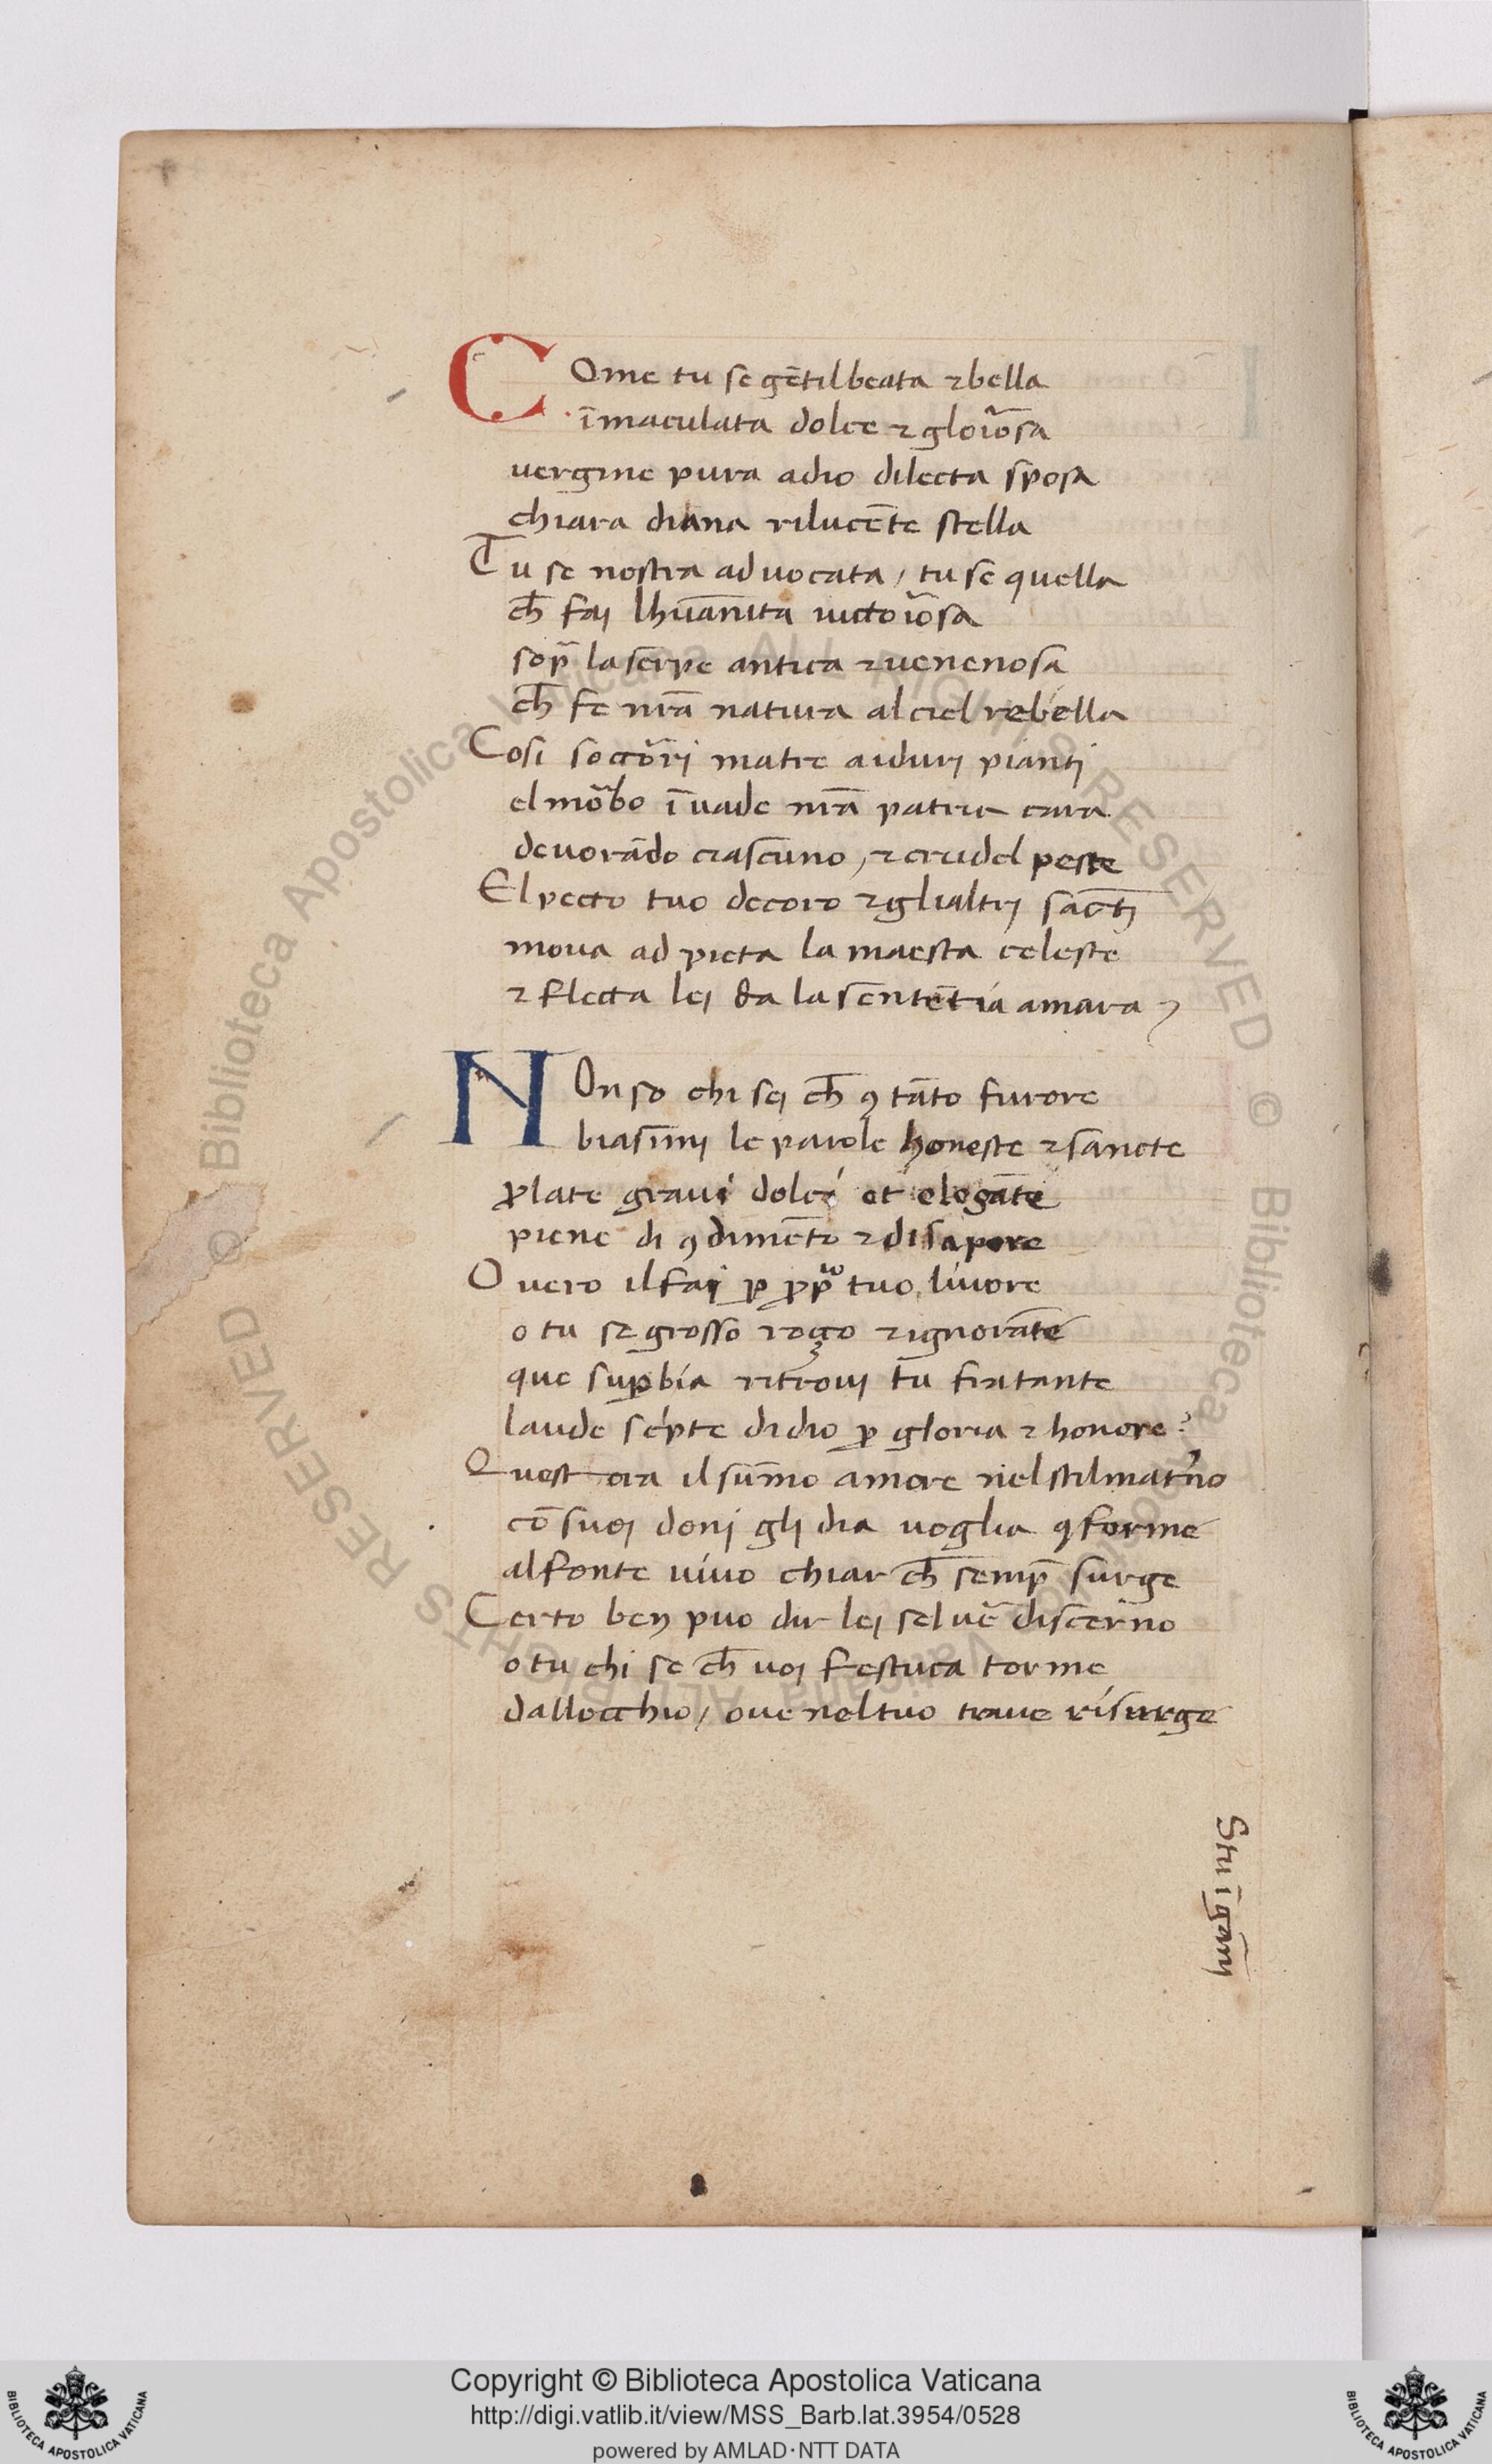 COme tu se gẽtil beata ⁊ bella
ĩmaculata dolce ⁊ gloĩosa
uergine pura adio dilecta sposa
chiara diana rilucẽte stella
Tu se nostra aduocata / tu se quella
ch̄ faj lhuãnita uictoĩosa
sop̃ la serpe antica ⁊ uenenosa
ch̄ fe nr̃a natura al ciel rebella
Cosi soccõrj matre aidurj piantj
el mõbo ĩuade nr̃a patria cara
deuorãdo ciascuno / ⁊ crudel peste
El pecto tuo decoro ⁊ glialtrj sãctj
moua ad pieta la maesta celeste
⁊ flecta lej da la sentẽtia amara
NOn so chi sej ch̄ ꝯ tãto furore
biasimj le parole honeste ⁊ sancte
ꝓlate graui dolci et elegãte
piene di ꝯdimẽto ⁊ di sapore
O uero il faj ꝑ ꝓpͦ tuo liuore
o tu se grosso rozo ⁊ ignorãte
que suꝑbia ritrouj tu fra tante
laude sc̃pte di dio ꝑ gloria ⁊ honore?
Quest ora il sum̃o amore nel stil mat̃no
cõ suoj donj glj dia uoglia ꝯforme
al fonte uiuo chiar ch̄ semp̃ surge
Certo ben puo dir lej sel ue᷉ discer̃no
o tu chi se ch̄ uoj festuca torme
dallocchio / oue nel tuo traue risurge
Copyright © Biblioteca Apostolica Vaticana
http://digi.vatlib.it/view/MSS_Barb.lat.3954/0528
powered by AMLAD·NTT DATA
BIBLIOTECA APOSTOLICA VATICANA
BIBLIOTECA APOSTOLICA VATICANA
© Biblioteca Apostolica Vaticana ALL RIGHTS RESERVED © Biblioteca Apostolica Vaticana ALL RIGHTS RESERVED